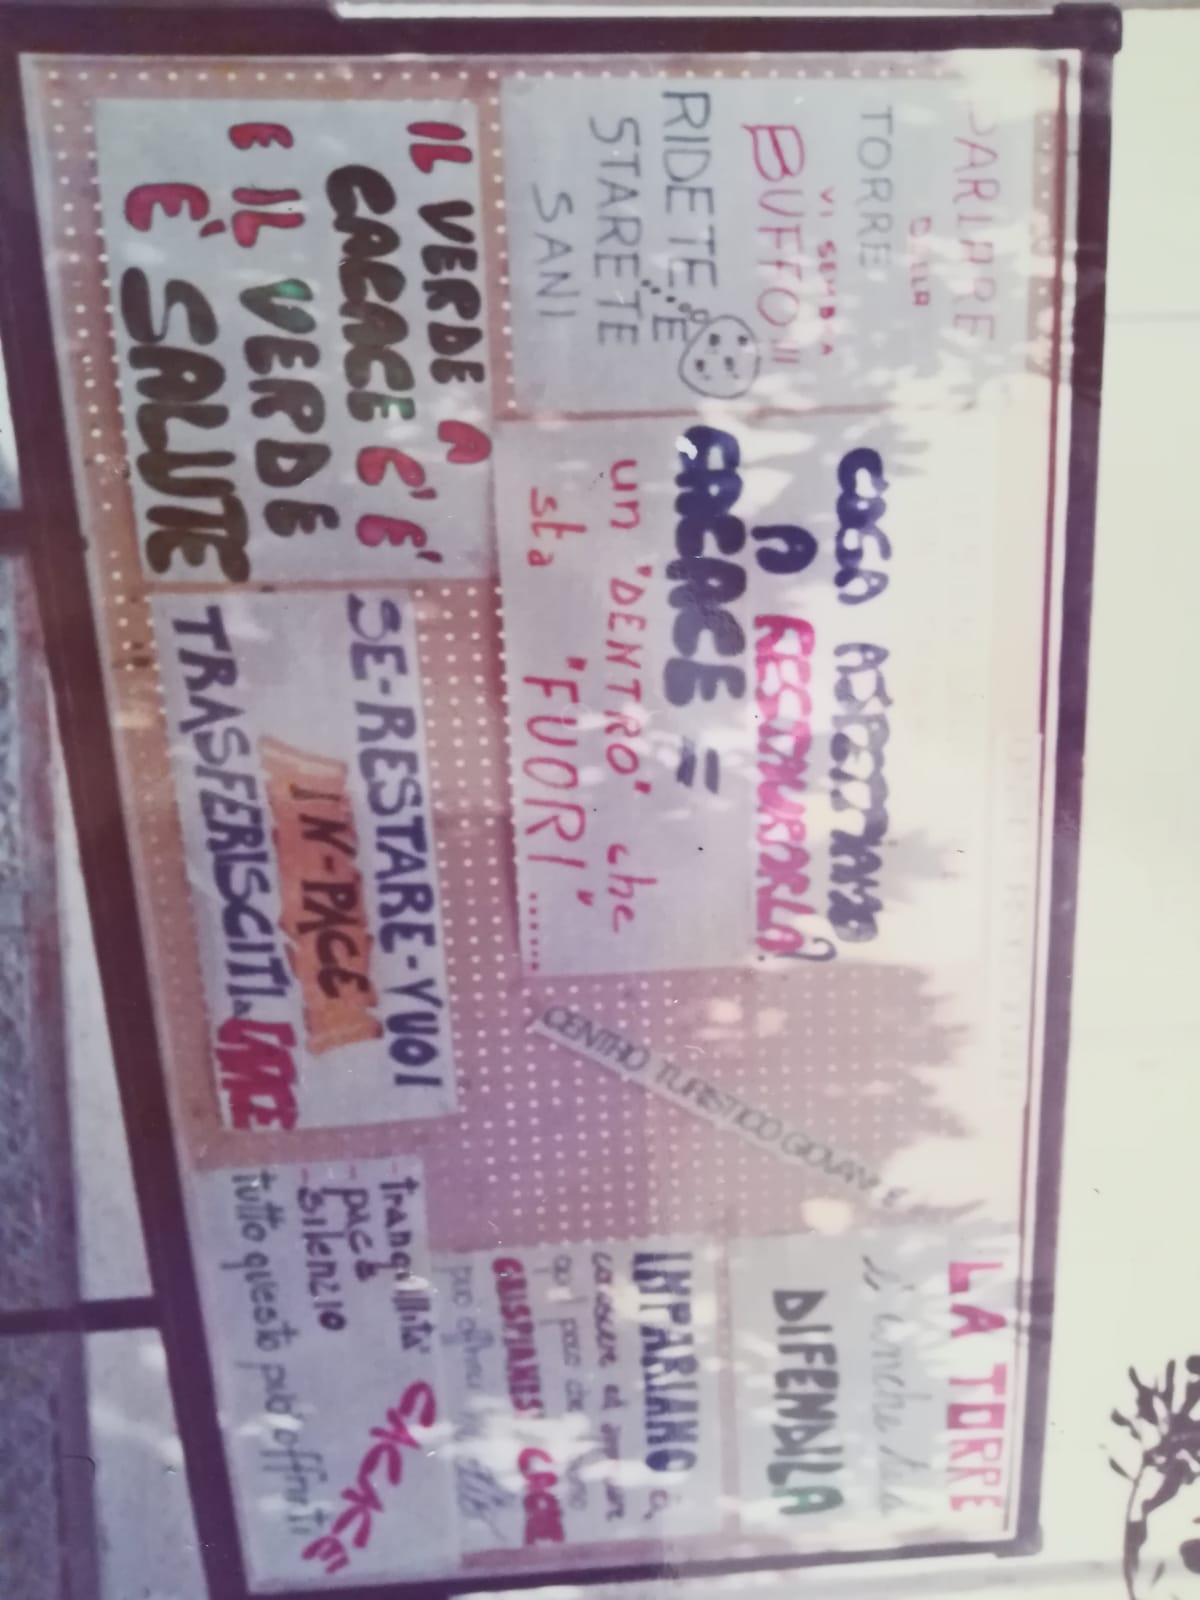 PARLARE
DELLA
TORRE
VI SEMBRA
BUFFO!!
RIDETE
E
STARETE
SANI
COSA ASPETTANO
A RESTAURARLA?
CACACE =
un "DENTRO" che
sta "FUORI"......
IL VERDE A
CACACE C'É'
E IL VERDE
É' SALUTE
SE-RESTARE-VUOI
IN-PACE
TRASFERISCITI
CENTRO TURISTICO GIOVANILE
LA TORRE
DIFENDILA
IMPARIAMO a
conoscere ed
quel poco che
CRISPIANESI
può offrirci
- tranquillità
- pace
- silenzio
tutto questo può offrirti
CACACE!!